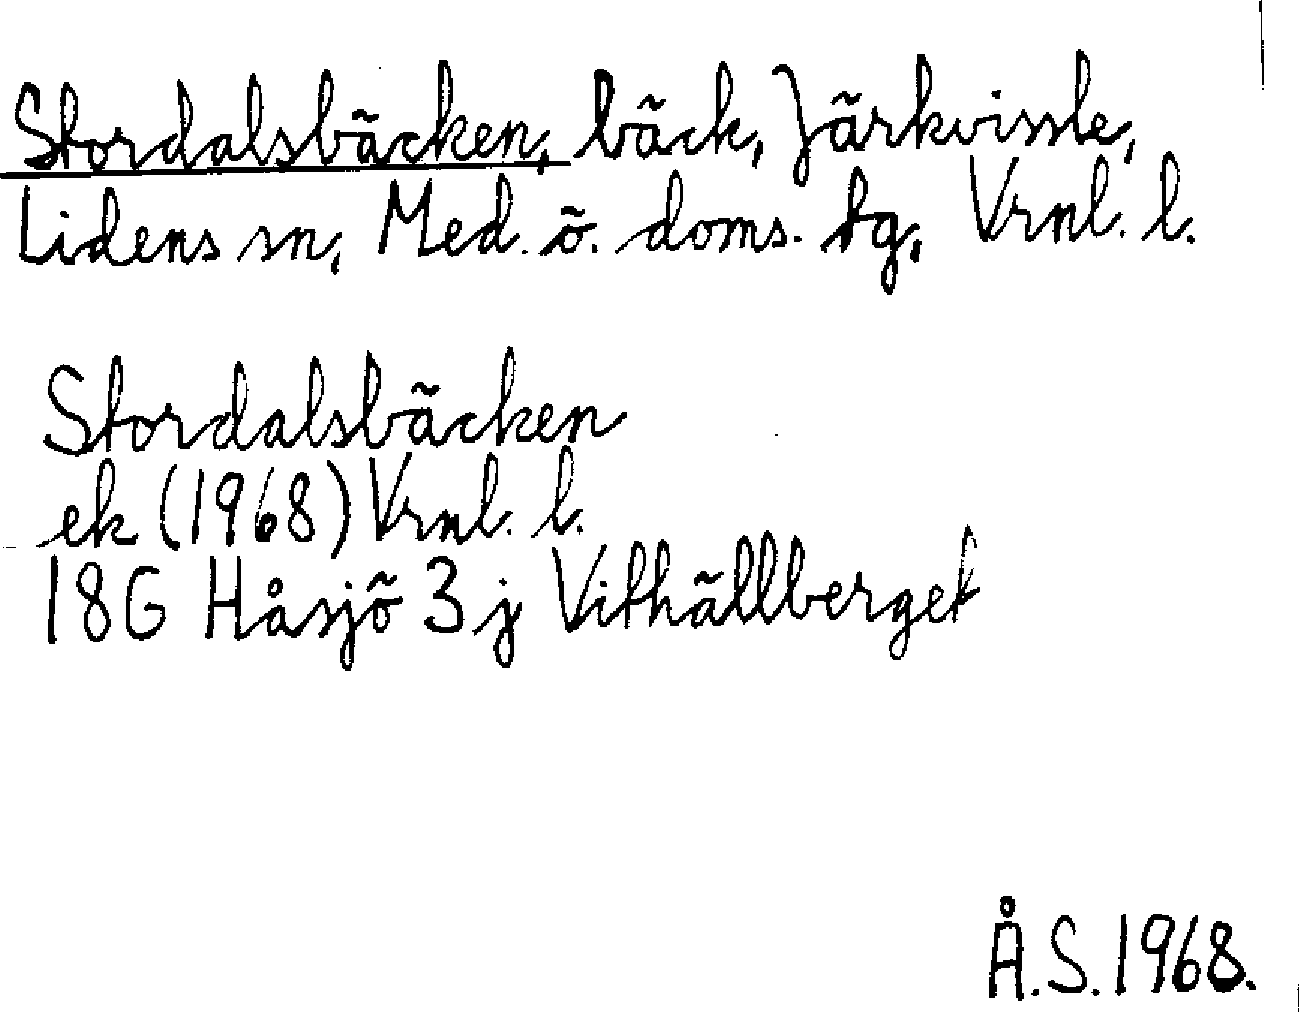 Stordalsbäcken, bäck, Järkvissle,
Lidens sn, Med. ö. doms. tg, Vrnl. l.
Stordalsbäcken
ek (1968) Vrnl. l.
18G Håsjö 3 j Vithällberget
Å.S. 1968.